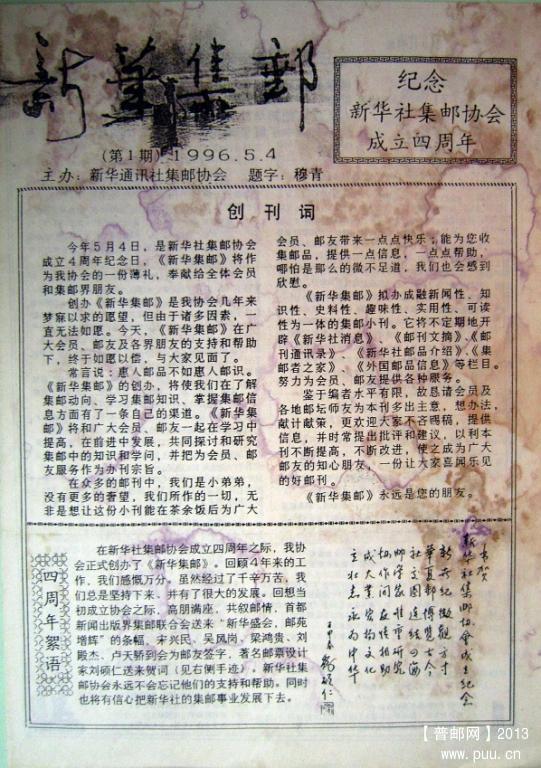 新华集邮
纪念
新华社集邮协会
成立四周年
(第1期) 1996.5.4
主办：新华通讯社集邮协会 题字：穆青
创刊词
今年5月4日，是新华社集邮协会
成立4周年纪念日，《新华集邮》将作
为我协会的一份薄礼，奉献给全体会员
和集邮界朋友。
创办《新华集邮》是我协会几年来
梦寐以求的愿望，但由于诸多因素，一
直无法如愿。今天，《新华集邮》在广
大会员、邮友及各界朋友的支持和帮助
下，终于如愿以偿，与大家见面了。
常言说：惠人邮品不如惠人邮识。
《新华集邮》的创办，将使我们在了解
集邮动向、学习集邮知识、掌握集邮信
息方面有了一条自己的渠道。《新华集
邮》将和广大会员、邮友一起在学习中
提高，在前进中发展，共同探讨和研究
集邮中的知识和学问，并把为会员、邮
友服务作为办刊宗旨。
在众多的邮刊中，我们是小弟弟，
没有更多的奢望，我们所作的一切，无
非是想让这份小刊能在茶余饭后为广大
会员、邮友带来一点点快乐；能为您收
集邮品，提供一点信息，一点点帮助，
哪怕是那么的微不足道，我们也会感到
欣慰。
《新华集邮》拟办成融新闻性、知
识性、史料性、趣味性、实用性、可读
性为一体的集邮小刊。它将不定期地开
辟《新华社消息》、《邮刊文摘》、《邮
刊通讯录》、《新华社邮品介绍》、《集
邮者之家》、《外国邮品信息》等栏目。
努力为会员、邮友提供各种服务。
鉴于编者水平有限，故恳请会员及
各地邮坛师友为本刊多出主意，想办法，
献计献策，更欢迎大家不吝赐稿，提供
信息，并时常提出批评和建议，以利本
刊不断提高，不断改进，使之成为广大
邮友的知心朋友，一份让大家喜闻乐见
的好邮刊。
《新华集邮》永远是您的朋友。
四周年絮语
在新华社集邮协会成立四周年之际，我协
会正式创办了《新华集邮》。回顾4年来的工
作，我们感慨万分。虽然经过了千辛万苦，我
们总是坚持下来，并有了很大的发展。回想当
初成立协会之际，高朋满座，共叙邮情，首都
新闻出版界集邮联合会送来“新华盛会，邮苑
增辉”的条幅，宋兴民、吴凤岗、梁鸿贵、刘
殿杰、卢天骄到会为邮友签字，著名邮票设计
家刘硕仁送来贺词（见右侧手迹）。新华社集
邮协会永远不会忘记他们的支持和帮助。同时
也将有信心把新华社的集邮事业发展下去。
书贺
新华社集邮协会成立纪念
【普邮网】2013
www.puu.cn